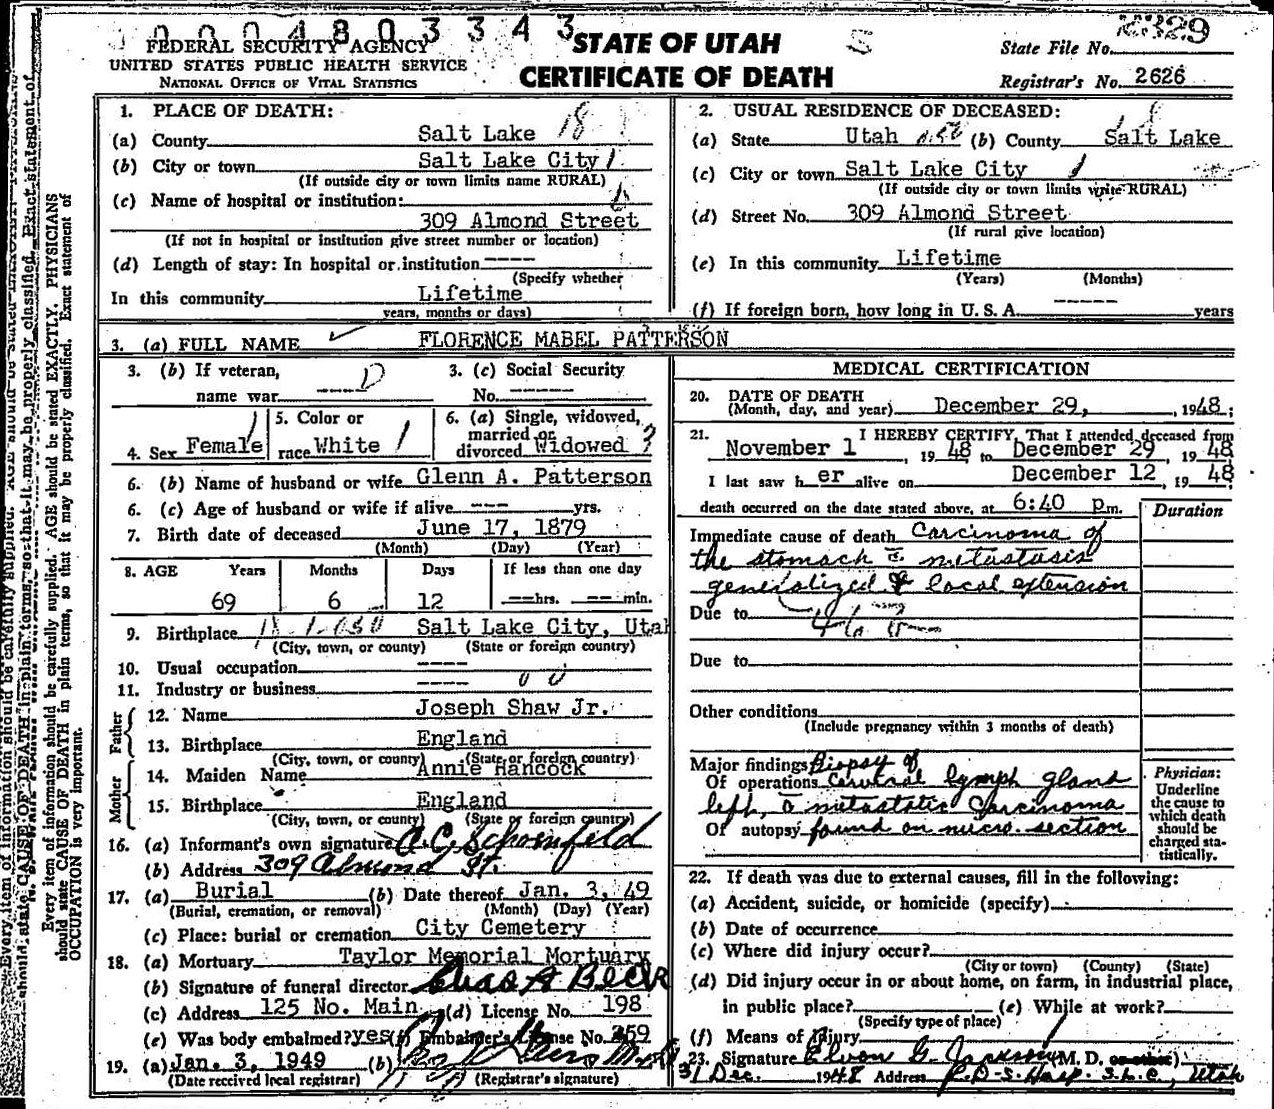 0004803343
FEDERAL SECURITY AGENCY
UNITED STATES PUBLIC HEALTH SERVICE
NATIONAL OFFICE OF VITAL STATISTICS
STATE OF UTAH
CERTIFICATE OF DEATH
State File No.
Registrar's No. 2626
1. PLACE OF DEATH:
(a) County Salt Lake 18
(b) City or town Salt Lake City 1
(If outside city or town limits name RURAL)
(c) Name of hospital or institution:
309 Almond Street
(If not in hospital or institution give street number or location)
(d) Length of stay: In hospital or institution ----
(Specify whether
In this community Lifetime
years, months or days)
2. USUAL RESIDENCE OF DECEASED:
(a) State Utah (b) County Salt Lake
(c) City or town Salt Lake City 1
(If outside city or town limits write RURAL)
(d) Street No. 309 Almond Street
(If rural give location)
(e) In this community Lifetime
(Years) (Months)
(f) If foreign born, how long in U. S. A. ----- years
3. (a) FULL NAME FLORENCE MABEL PATTERSON
3. (b) If veteran, name war ----
3. (c) Social Security No. -----
4. Sex Female
5. Color or race White
6. (a) Single, widowed, married or divorced Widowed
6. (b) Name of husband or wife Glenn A. Patterson
6. (c) Age of husband or wife if alive --- yrs.
7. Birth date of deceased June 17, 1879
(Month) (Day) (Year)
8. AGE Years Months Days If less than one day
69 6 12 --hrs. --min.
9. Birthplace Salt Lake City, Utah
(City, town, or county) (State or foreign country)
10. Usual occupation ----
11. Industry or business ----
Father
12. Name Joseph Shaw Jr.
13. Birthplace England
(City, town, or county) (State or foreign country)
Mother
14. Maiden Name Annie Hancock
15. Birthplace England
(City, town, or county) (State or foreign country)
16. (a) Informant's own signature A.C. Schoenfeld
(b) Address 309 Almond St.
17. (a) Burial (b) Date thereof Jan. 3, 49
(Burial, cremation, or removal) (Month) (Day) (Year)
(c) Place: burial or cremation City Cemetery
18. (a) Mortuary Taylor Memorial Mortuary
(b) Signature of funeral director Chas A Beck
(c) Address 125 No. Main (d) License No. 198
(e) Was body embalmed? yes (f) Embalmer's License No. 259
19. (a) Jan. 3, 1949 (b)
(Date received local registrar) (Registrar's signature)
MEDICAL CERTIFICATION
20. DATE OF DEATH
(Month, day, and year) December 29, 1948;
21. I HEREBY CERTIFY, That I attended deceased from
November 1, 1948 to December 29, 1948
I last saw her alive on December 12, 1948
death occurred on the date stated above, at 6:40 p.m.
Duration
Immediate cause of death Carcinoma of
the stomach c̄ metastasis
generalized & local extension
Due to
Due to
Other conditions
(Include pregnancy within 3 months of death)
Major findings Biopsy of
Of operations Cervical lymph gland
left, c̄ metastatic Carcinoma
Of autopsy found on micro. section
Physician:
Underline
the cause to
which death
should be
charged sta-
tistically.
22. If death was due to external causes, fill in the following:
(a) Accident, suicide, or homicide (specify)
(b) Date of occurrence
(c) Where did injury occur?
(City or town) (County) (State)
(d) Did injury occur in or about home, on farm, in industrial place,
in public place? (e) While at work?
(Specify type of place)
(f) Means of Injury
23. Signature Elvon G. Jackson (M. D. or other)
31 Dec. 1948 Address L.D.S. Hosp. S.L.C., Utah
Every item of information should be carefully supplied. AGE should be stated EXACTLY. PHYSICIANS
should state CAUSE OF DEATH in plain terms, so that it may be properly classified. Exact statement of
OCCUPATION is very important.